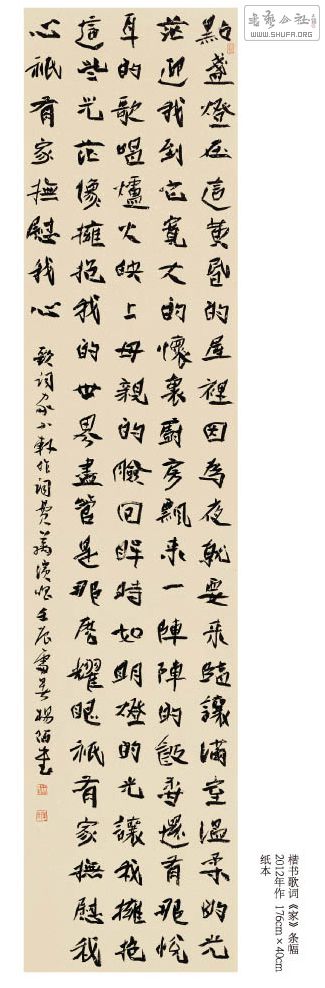 書藝公社
WWW.SHUFA.ORG
點盞燈在這黃昏的屋裡因為夜就要來臨讓滿室溫柔的光
茫迎我到它寬大的懷裏廚房飄來一陣陣的飯香還有那悅
耳的歌唱爐火映上母親的臉回眸時如明燈的光讓我擁抱
這些光茫像擁抱我的世界盡管是那麼耀眼祇有家撫慰我
心祇有家撫慰我心
歌詞家小軒作詞費翔演唱壬辰
楷书歌词《家》条幅
2012年作 176cm×40cm
纸本